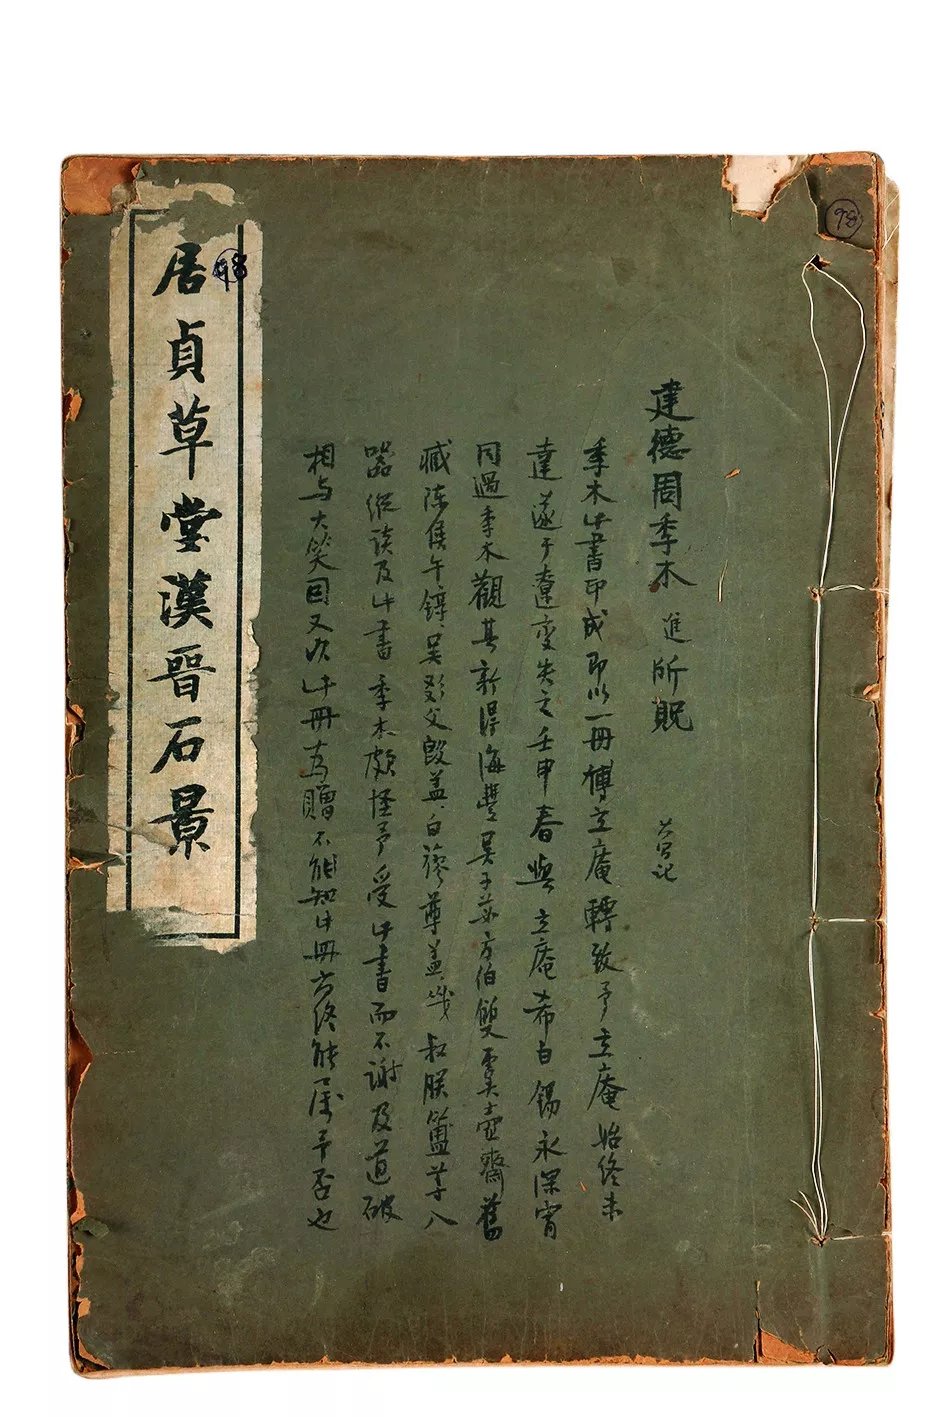 98
建德周季木進所貺
季木此書印成即以一冊傅立庵轉致予立庵始終未
達遂于遼變失之壬申春與立庵希白錫永深宵
同過季木觀其新得海豐吳子苾方伯雙虞壺齋舊
臧陳侯午錞吳彭父𣪘蓋白蓼尊蓋幾叔朕簠等八
器縱談及此書季木頗怪予受此書而不謝及道破
相与大笑因又次此冊為贈不能知此冊亦終能屬予否也
居貞草堂漢晉石景
98